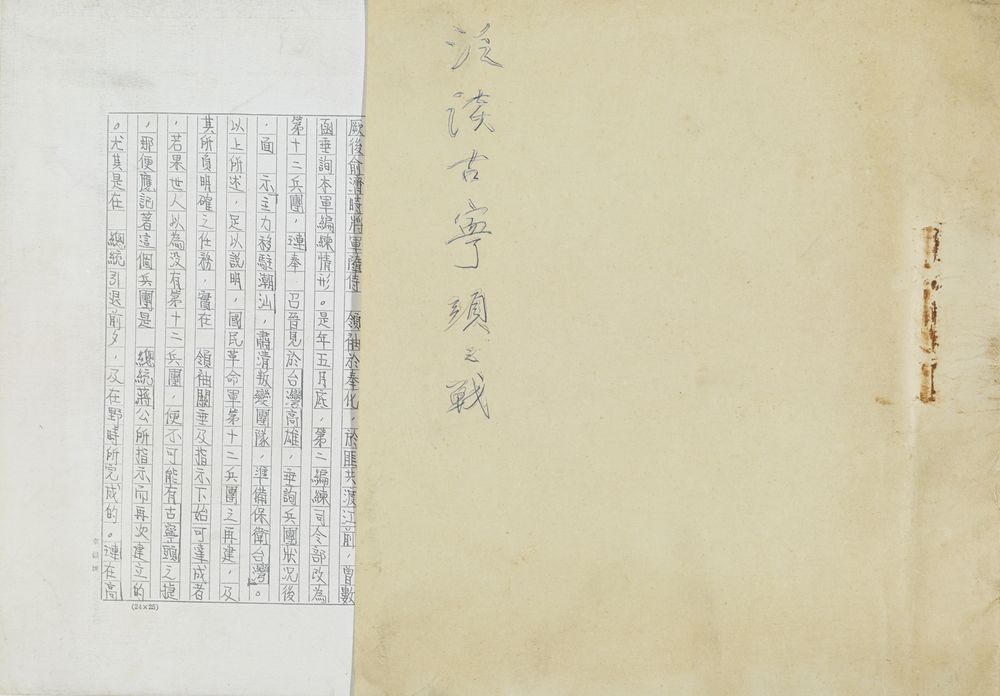 泛談古寧頭之戰
厥後俞濟時將軍隨侍 領袖於奉化，於匪共渡江前，曾數
函垂詢本軍編練情形。是年五月底，第二編練司令部改為
第十二兵團，璉奉 召晉見於台灣高雄，垂詢兵團狀況後
，面 示主力移駐潮汕，肅清叛變團隊，準備保衛台灣。
以上所述，足以說明，國民革命軍第十二兵團之再建，及
其所負明確之任務，實在 領袖關垂及指示下始可達成者
，若果世人以為沒有第十二兵團，便不可能有古寧頭之捷
，那便應記著這個兵團是 總統蔣公所指示而再次建立的
。尤其是在 總統引退前夕，及在野時所完成的。璉在高
(24×25)